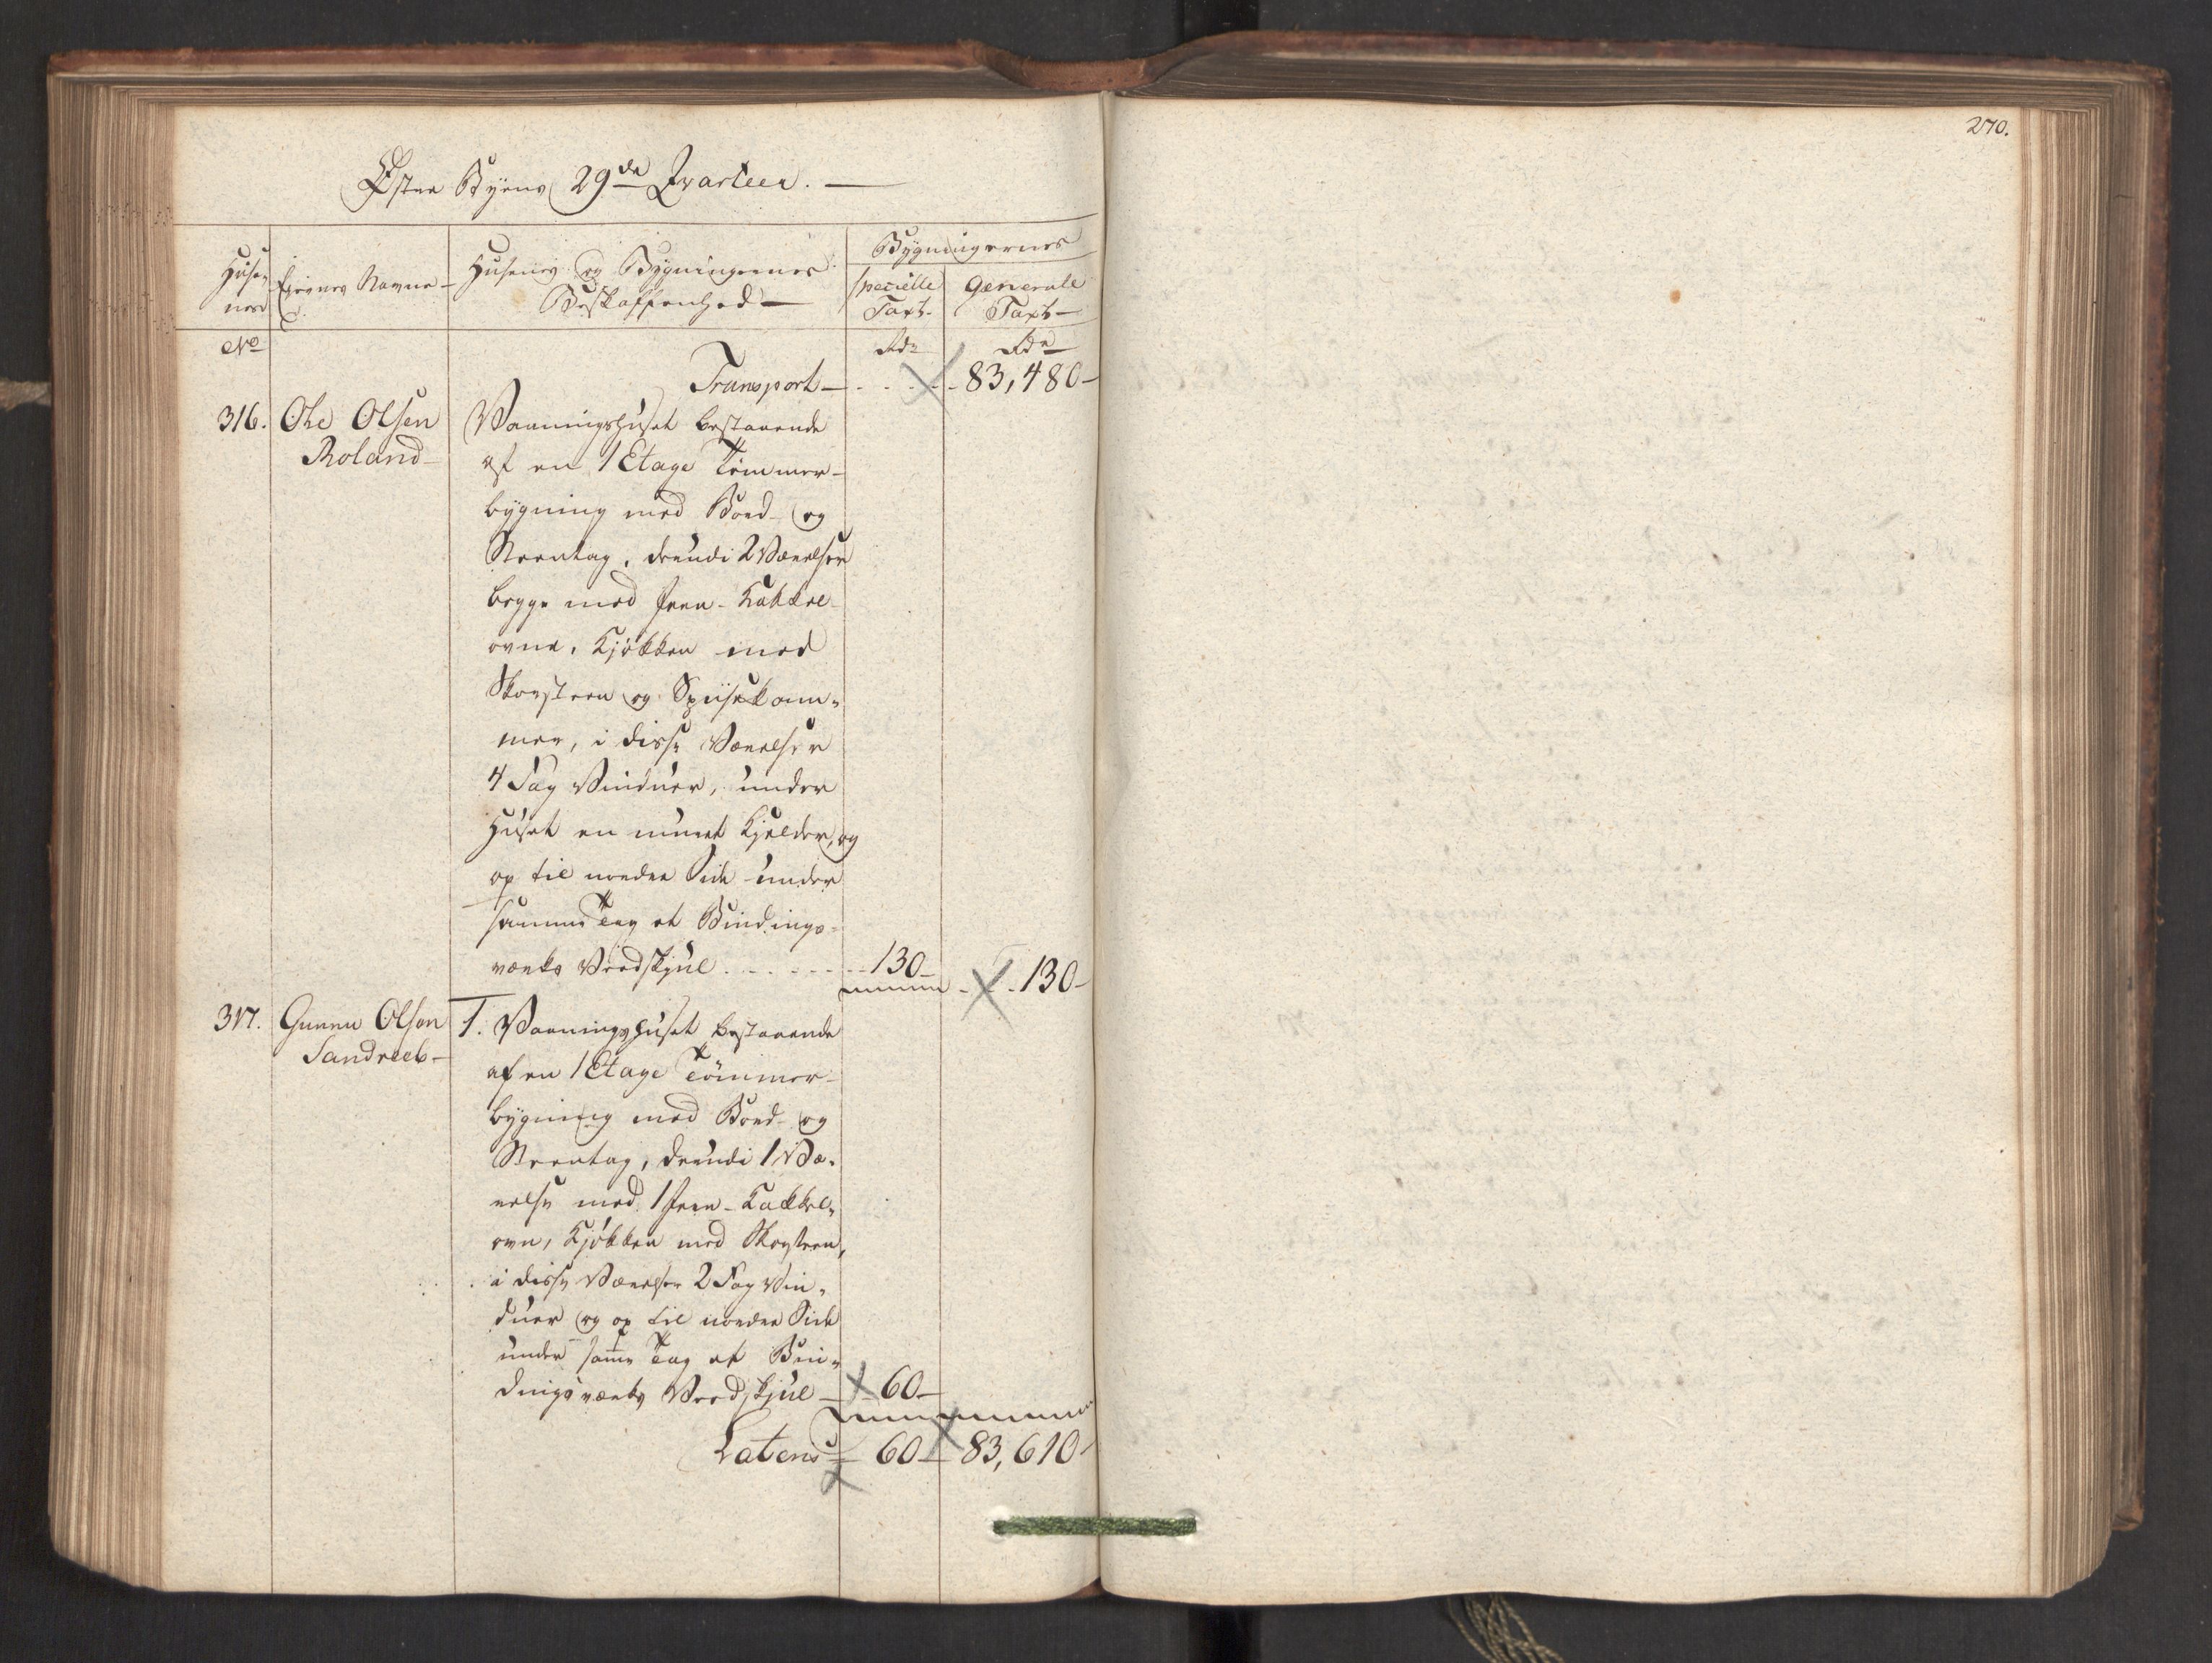 270.
Øster Byens 29de Qvarteer.
Huse-
nes
Eiernes Navne
Husenes og Bygningernes
Beskaffenhed
Bygningernes
specielle
Taxt
Generale
Taxt
No
Rdr
Rdr
Transport - 83,480
316. Ole Olsen
Roland
Vaaningshuset bestaaende
af en 1 Etage Tømmer-
bygning med Bord- og
Steentag, deri 2 Værelser
begge med Jern-Kakkel-
ovne, Kjøkken med
Skorsteen og Spiisekam-
mer, i disse Værelser
4 Fag Vinduer, under
Huset en muret Kjelder, og
op til nordre Side under
samme Tag et Bindings-
værks Vedskjul . . . . 130
130
317. Gunner Olsen
Sandreeb
1. Vaaningshuset bestaaende
af en 1 Etage Tømmer-
bygning med Bord- og
Steentag, derudi 1 Væ-
relse med 1 Jern-Kakkel-
ovn, Kjøkken med Skorsteen,
i disse Værelser 2 Fag Vin-
duer og op til nordre Side
under samme Tag et Bin-
dingsværks Vedskjul 60
Latens 60 83,610